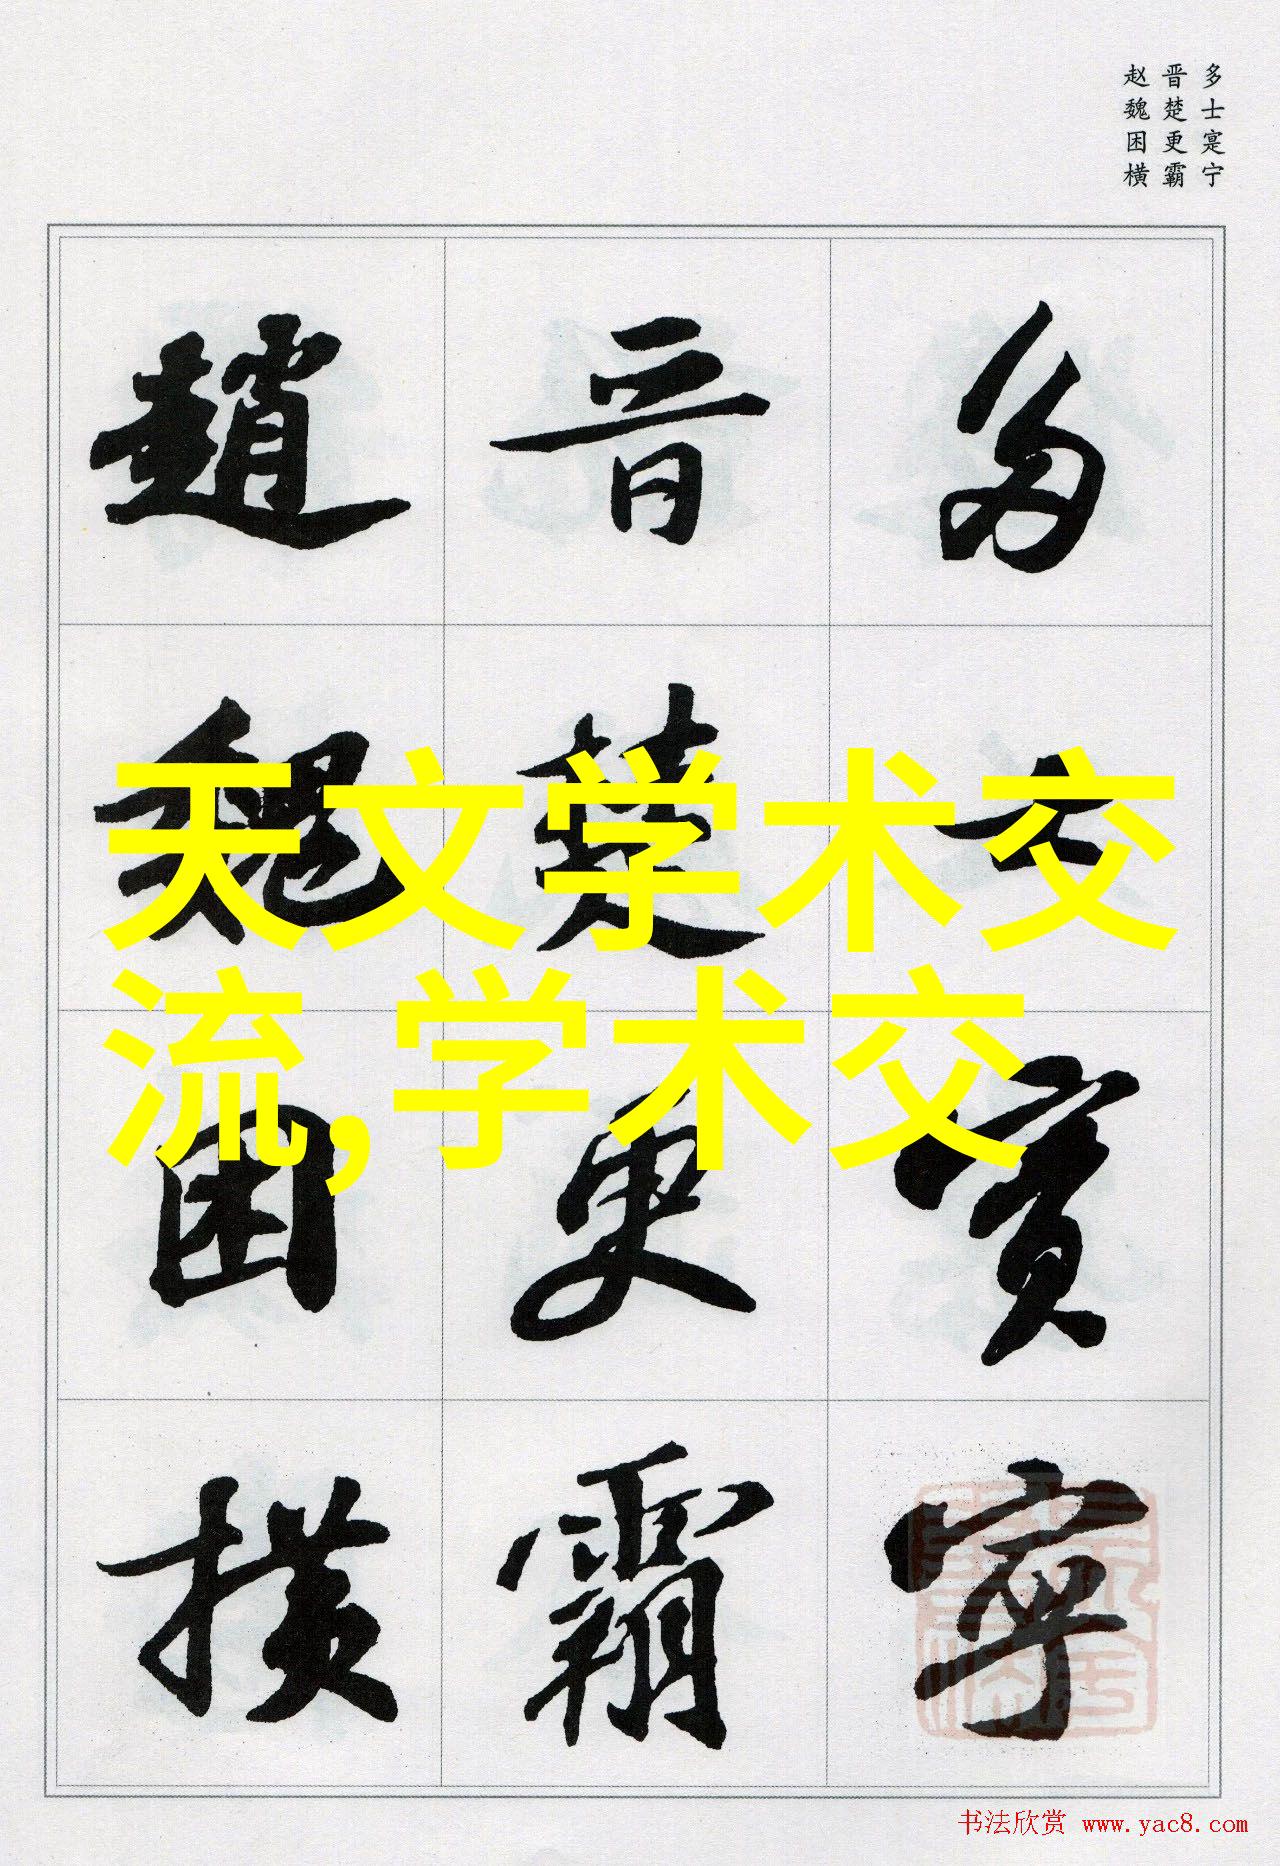 多士寔宁
晋楚更霸
赵魏困横
多士實寧
晋楚更霸
趙魏困横
天文学术交
流,学术交
书法欣赏 www.yac8.com